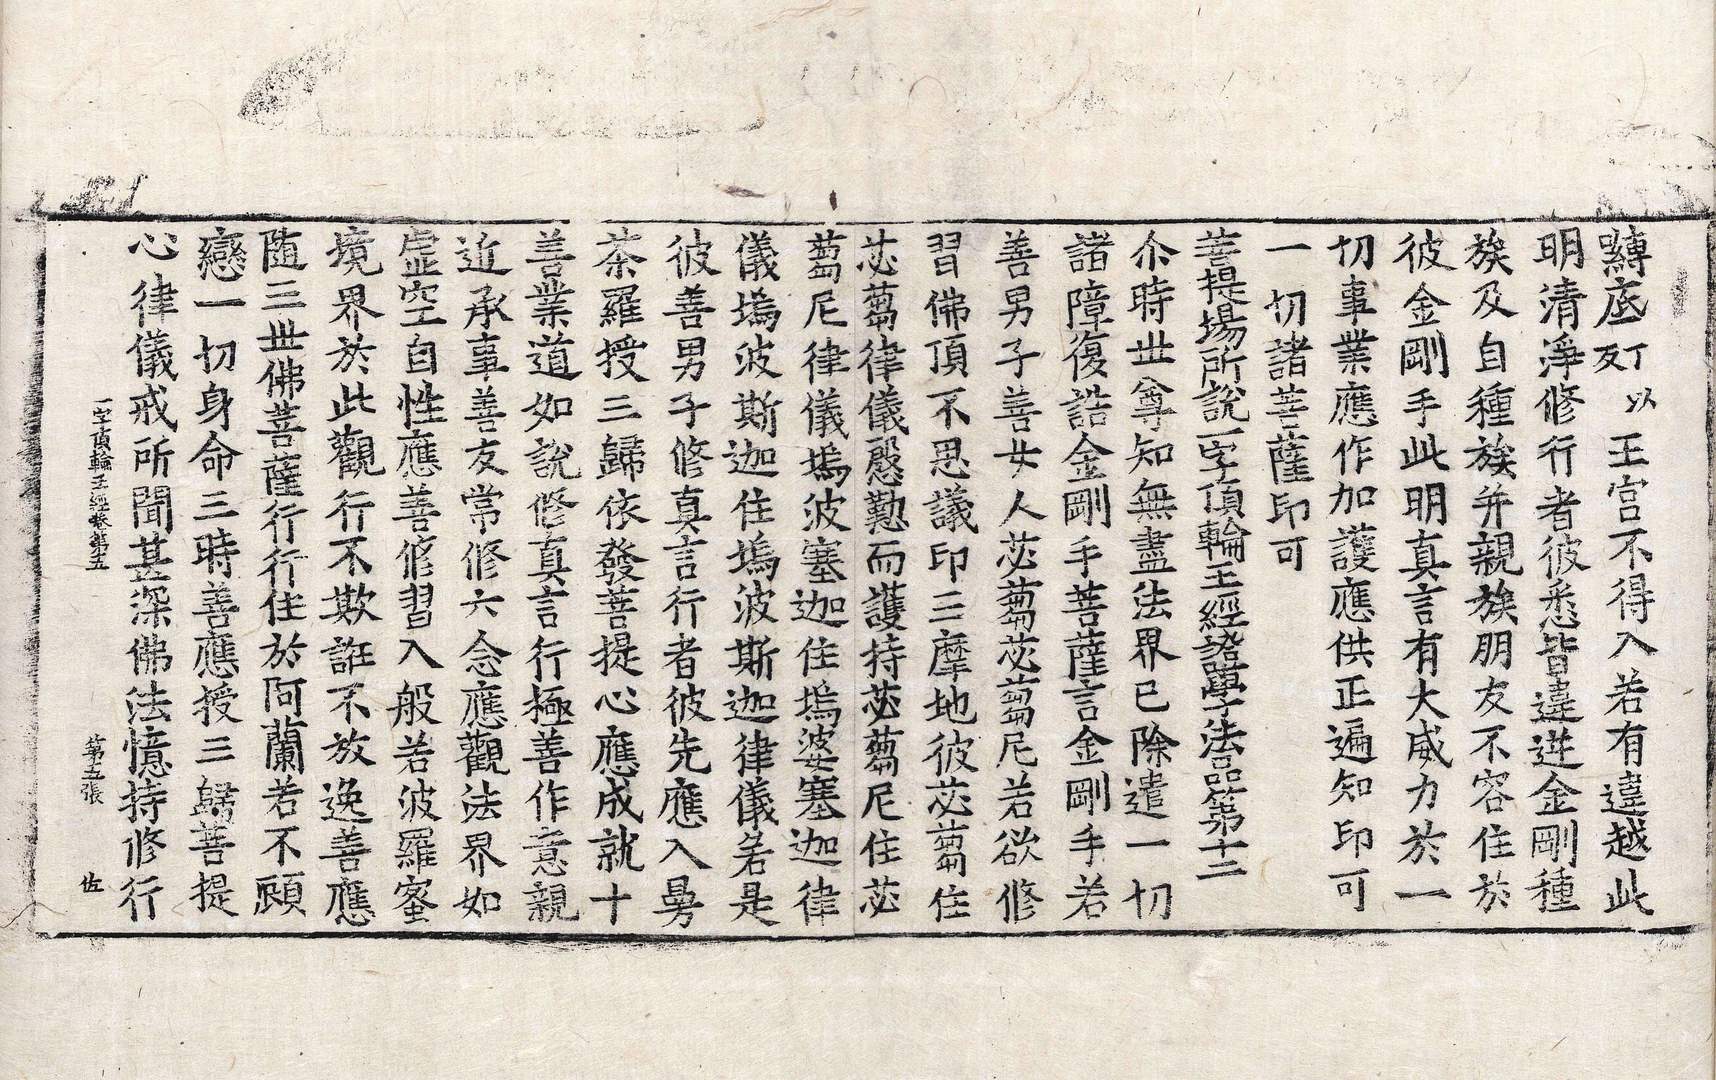 縛底丁以反王宮不得入若有違越此
明清淨修行者彼悉皆違逆金剛種
族及自種族并親族朋友不容住於
彼金剛手此明真言有大威力於一
切事業應作加護應供正遍知印可
一切諸菩薩印可
菩提場所說一字頂輪王經證學法品第十二
尒時世尊知無盡法界已除遣一切
諸障復誥金剛手菩薩言金剛手若
善男子善女人苾蒭苾蒭尼若欲修
習佛頂不思議印三摩地彼苾蒭住
苾蒭律儀慇懃而護持苾蒭尼住苾
蒭尼律儀塢波塞迦住塢婆塞迦律
儀塢波斯迦住塢波斯迦律儀若是
彼善男子修真言行者彼先應入曼
茶羅授三歸依發菩提心應成就十
善業道如說修真言行極善作意親
近承事善友常修六念應觀法界如
虛空自性應善修習入般若波羅蜜
境界於此觀行不欺誑不放逸善應
随三世佛菩薩行行住於阿蘭若不顧
戀一切身命三時善應授三歸菩提
心律儀戒所聞甚深佛法憶持修行
一字頂輪王經卷第五 第五張 佐